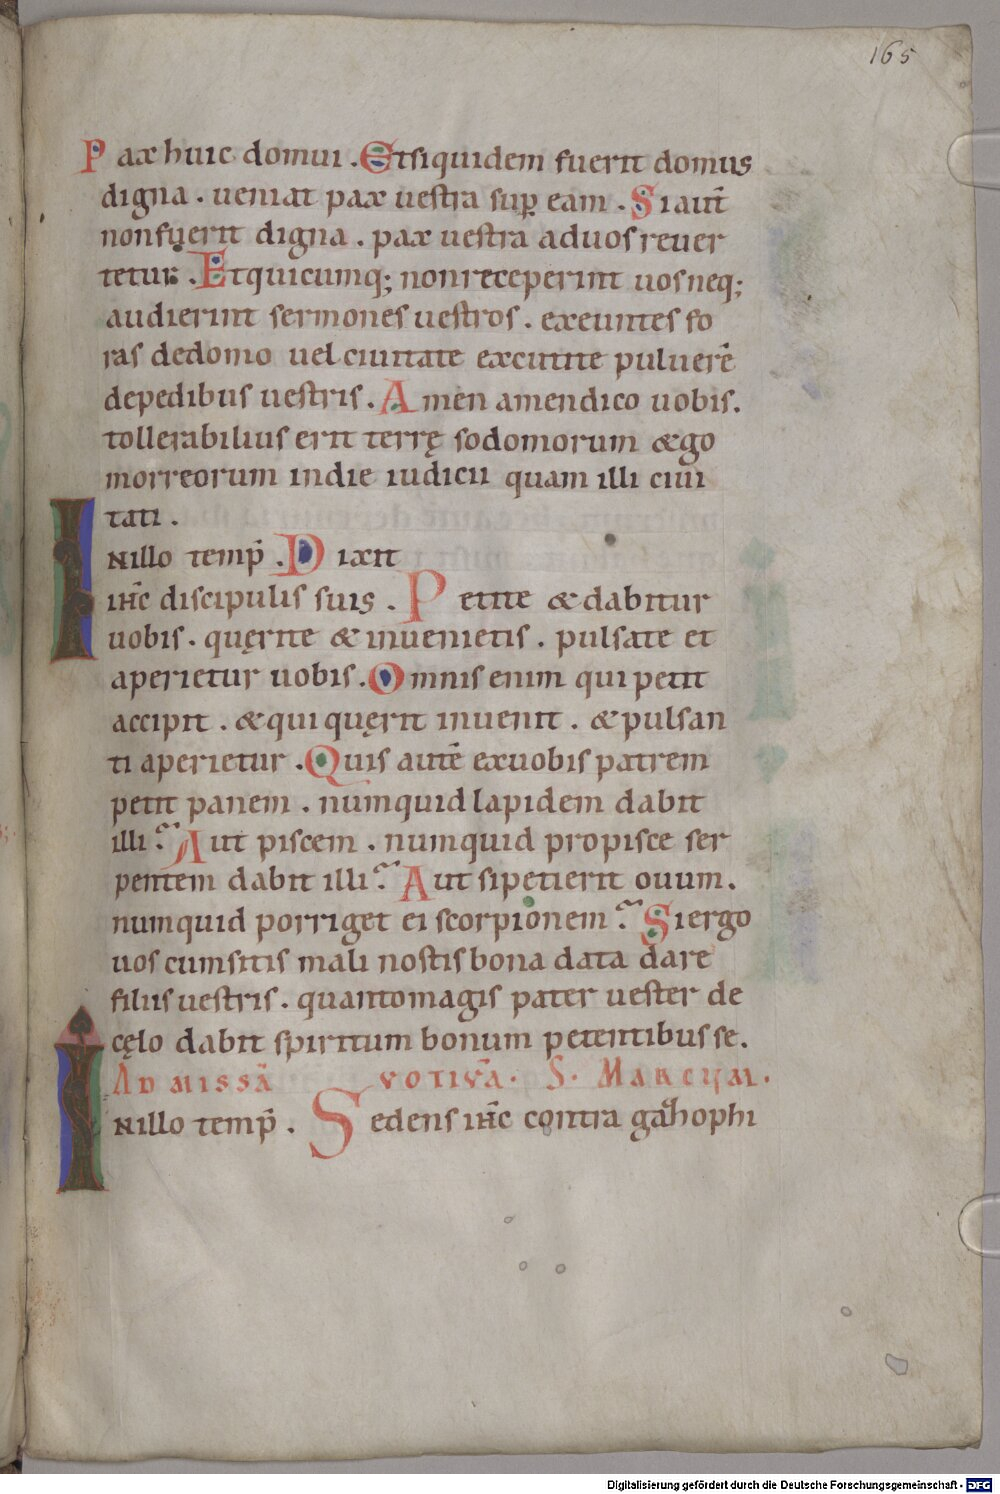 165
Pax huic domui . Et siquidem fuerit domus
digna . ueniat pax uestra suꝑ eam . Si aut̄
non fuerit digna . pax uestra ad uos reuer
tetur . Et quicumq; non receperint uos neq;
audierint sermones uestros . exeuntes fo
ras de domo uel ciuitate excutite puluerē
de pedibus uestris . Amen amen dico uobis .
tollerabilius erit terrę sodomorum & go
morreorum in die iudicii quam illi ciui
tati .
In illo temp̄ . Dixit
ih̄c discipulis suis . Petite & dabitur
uobis . quęrite & inuenietis . pulsate et
aperietur uobis . Omnis enim qui petit
accipit . & qui quęrit inuenit . & pulsan
ti aperietur . Quis autē ex uobis patrem
petit panem . numquid lapidem dabit
illi ? Aut piscem . numquid pro pisce ser
pentem dabit illi ? Aut si petierit ouum .
numquid porriget ei scorpionem ? Si ergo
uos cum sitis mali nostis bona data dare
filiis uestris . quanto magis pater uester de
cęlo dabit spiritum bonum petentibus se .
AD MISSĀ VOTIVĀ . S . MARCUM .
In illo temp̄ . Sedens ih̄c contra gazophi
Digitalisierung gefördert durch die Deutsche Forschungsgemeinschaft - DFG